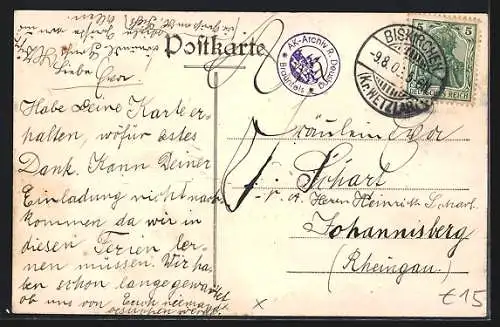 Postkarte
AK-Archiv R. Dümas
Braunfels
BISKIRCHEN
-9.8.0
(Kr. WETZLAR)
5
DEUTSCHES REICH
Liebe Eva
Habe Deine Karte er-
halten, wofür bestes
Dank. Kann Deiner
Einladung nicht nach-
kommen da wir in
diesen Ferien ler-
nen müssen. Wir ha-
ben schon lange gewartet
ob uns von Euch niemand
besuchen werde.
Fräulein Eva
Schart
p. A. Herrn Heinrich Schart
Johannisberg
(Rheingau)
x
€15